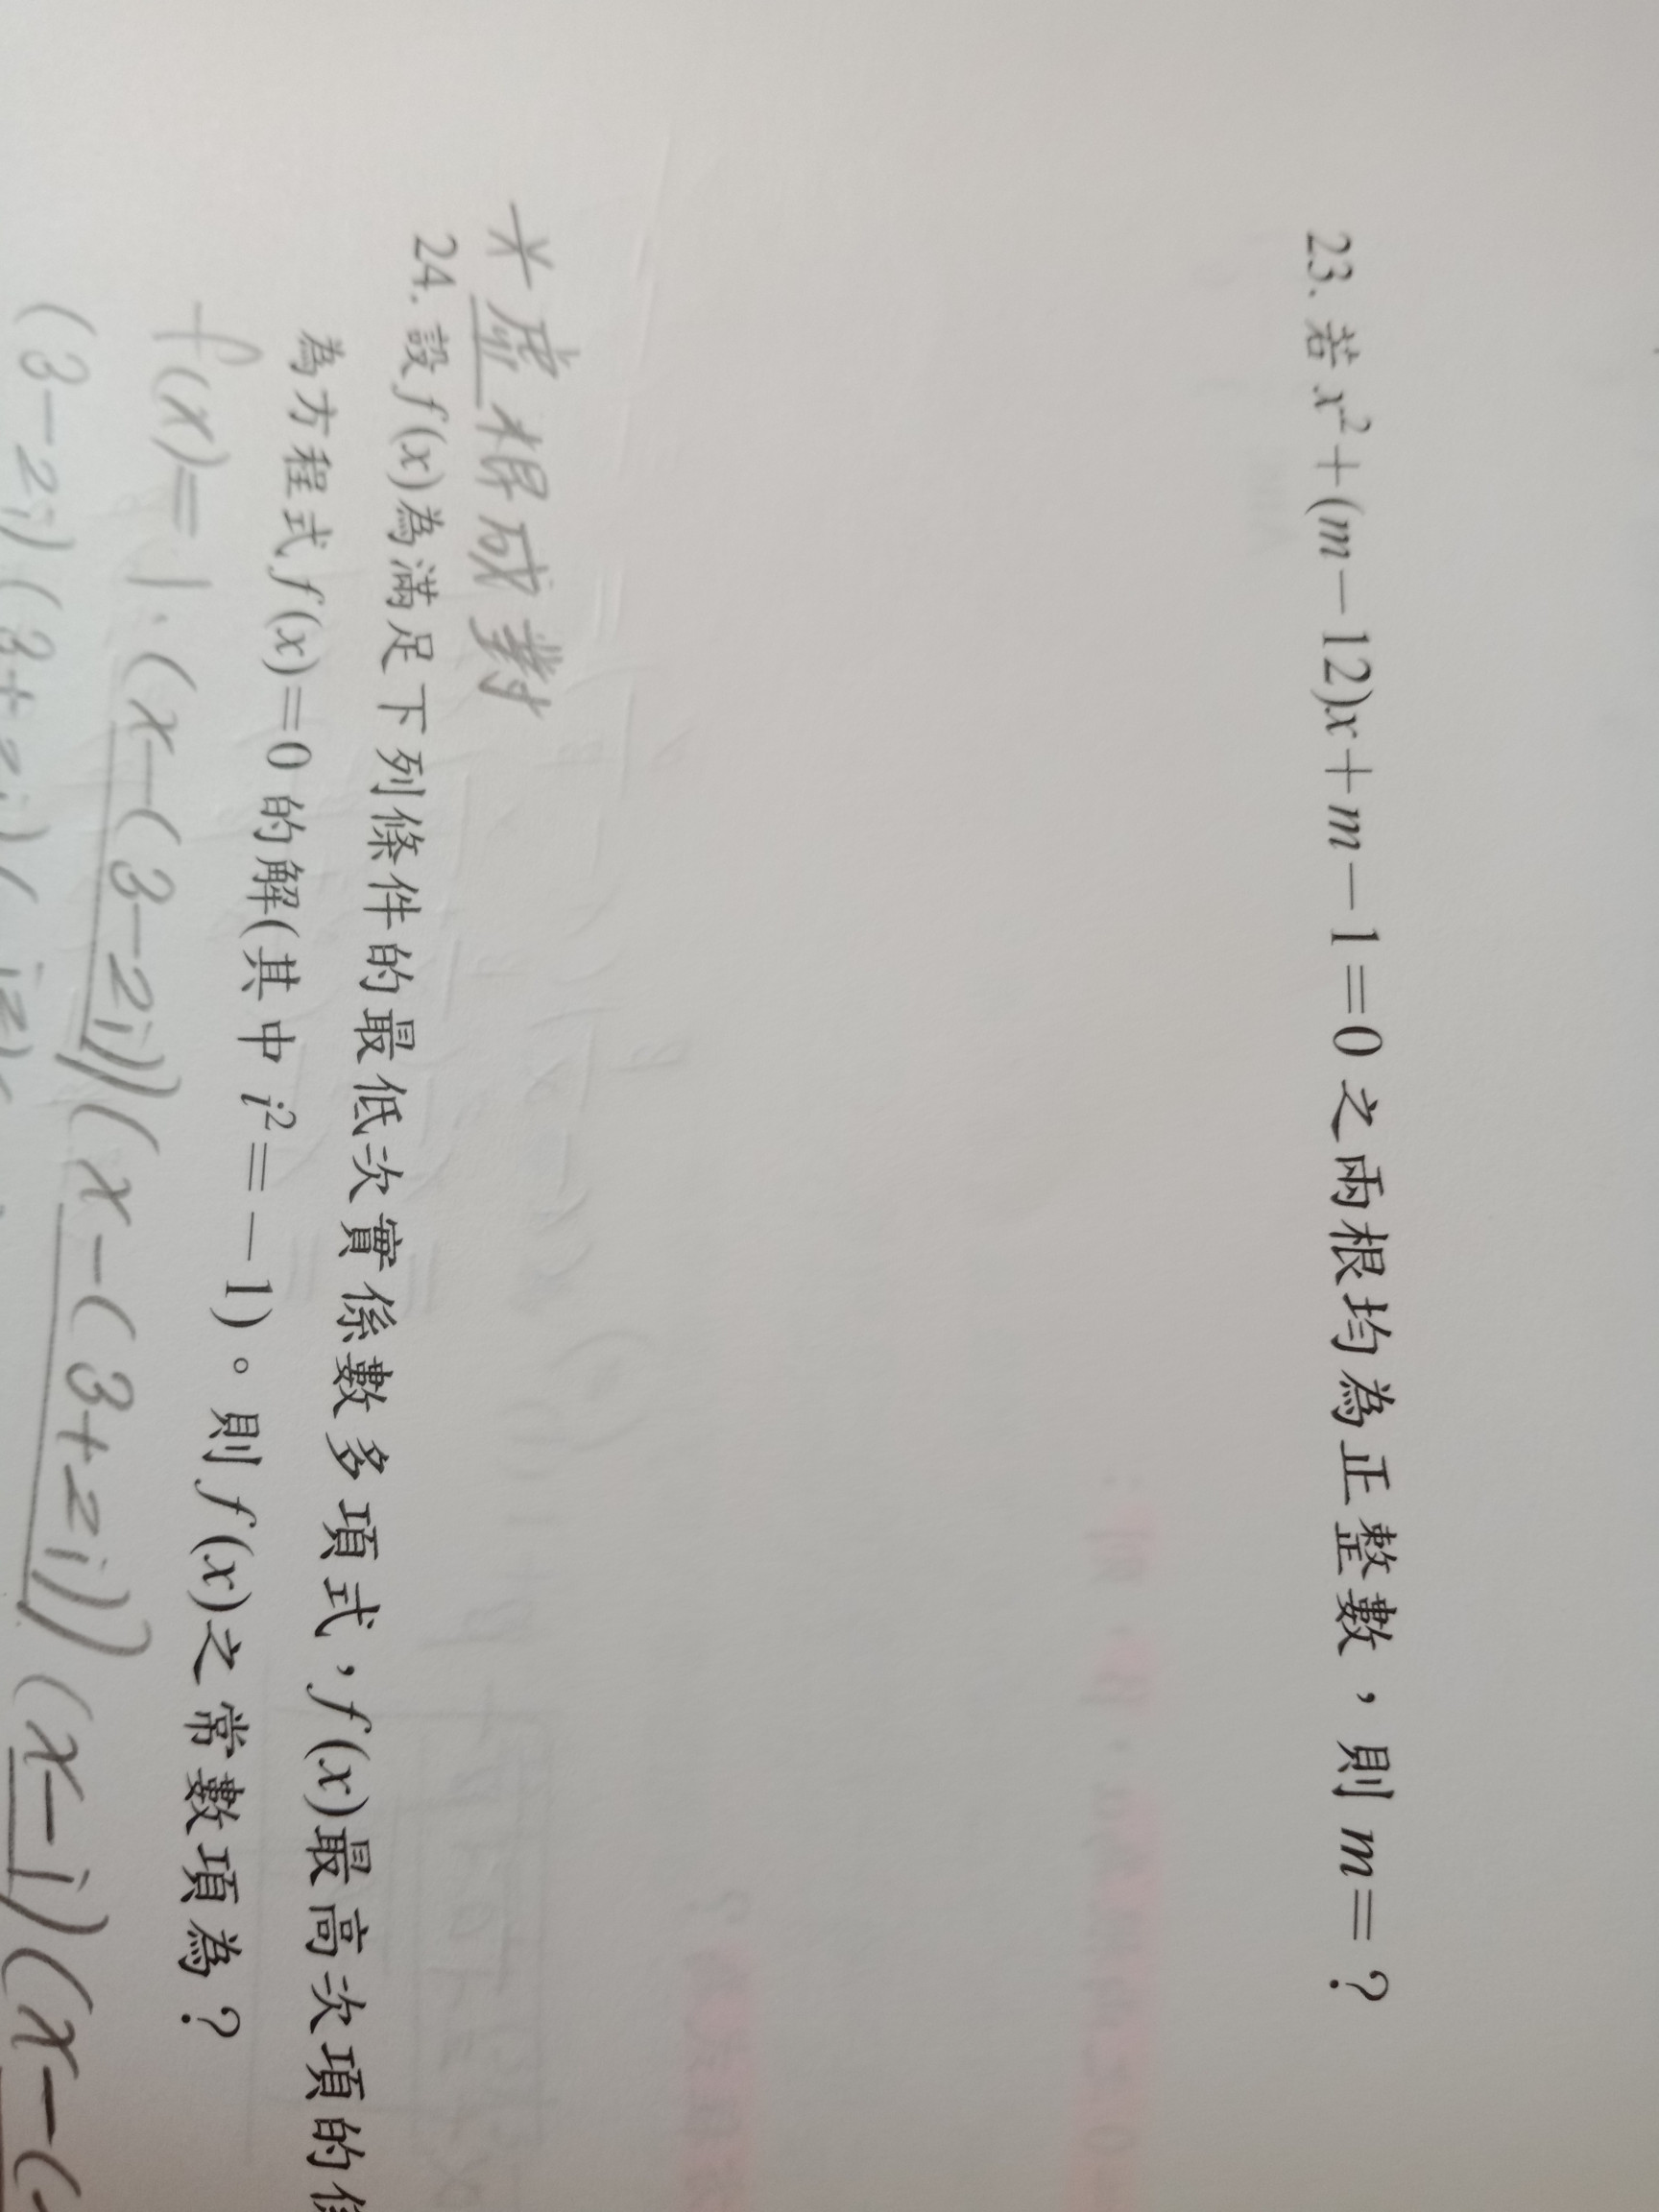 23. 若 x²+(m−12)x+m−1=0 之兩根均為正整數，則 m=？
*虛根成對
24. 設 f(x)為滿足下列條件的最低次實係數多項式，f(x)最高次項的係
為方程式 f(x)=0 的解(其中 i²=−1)。則 f(x)之常數項為？
f(x)=1·(x-(3-2i))(x-(3+2i))(x-i)(x-(
(3-2i)(3+2i)(